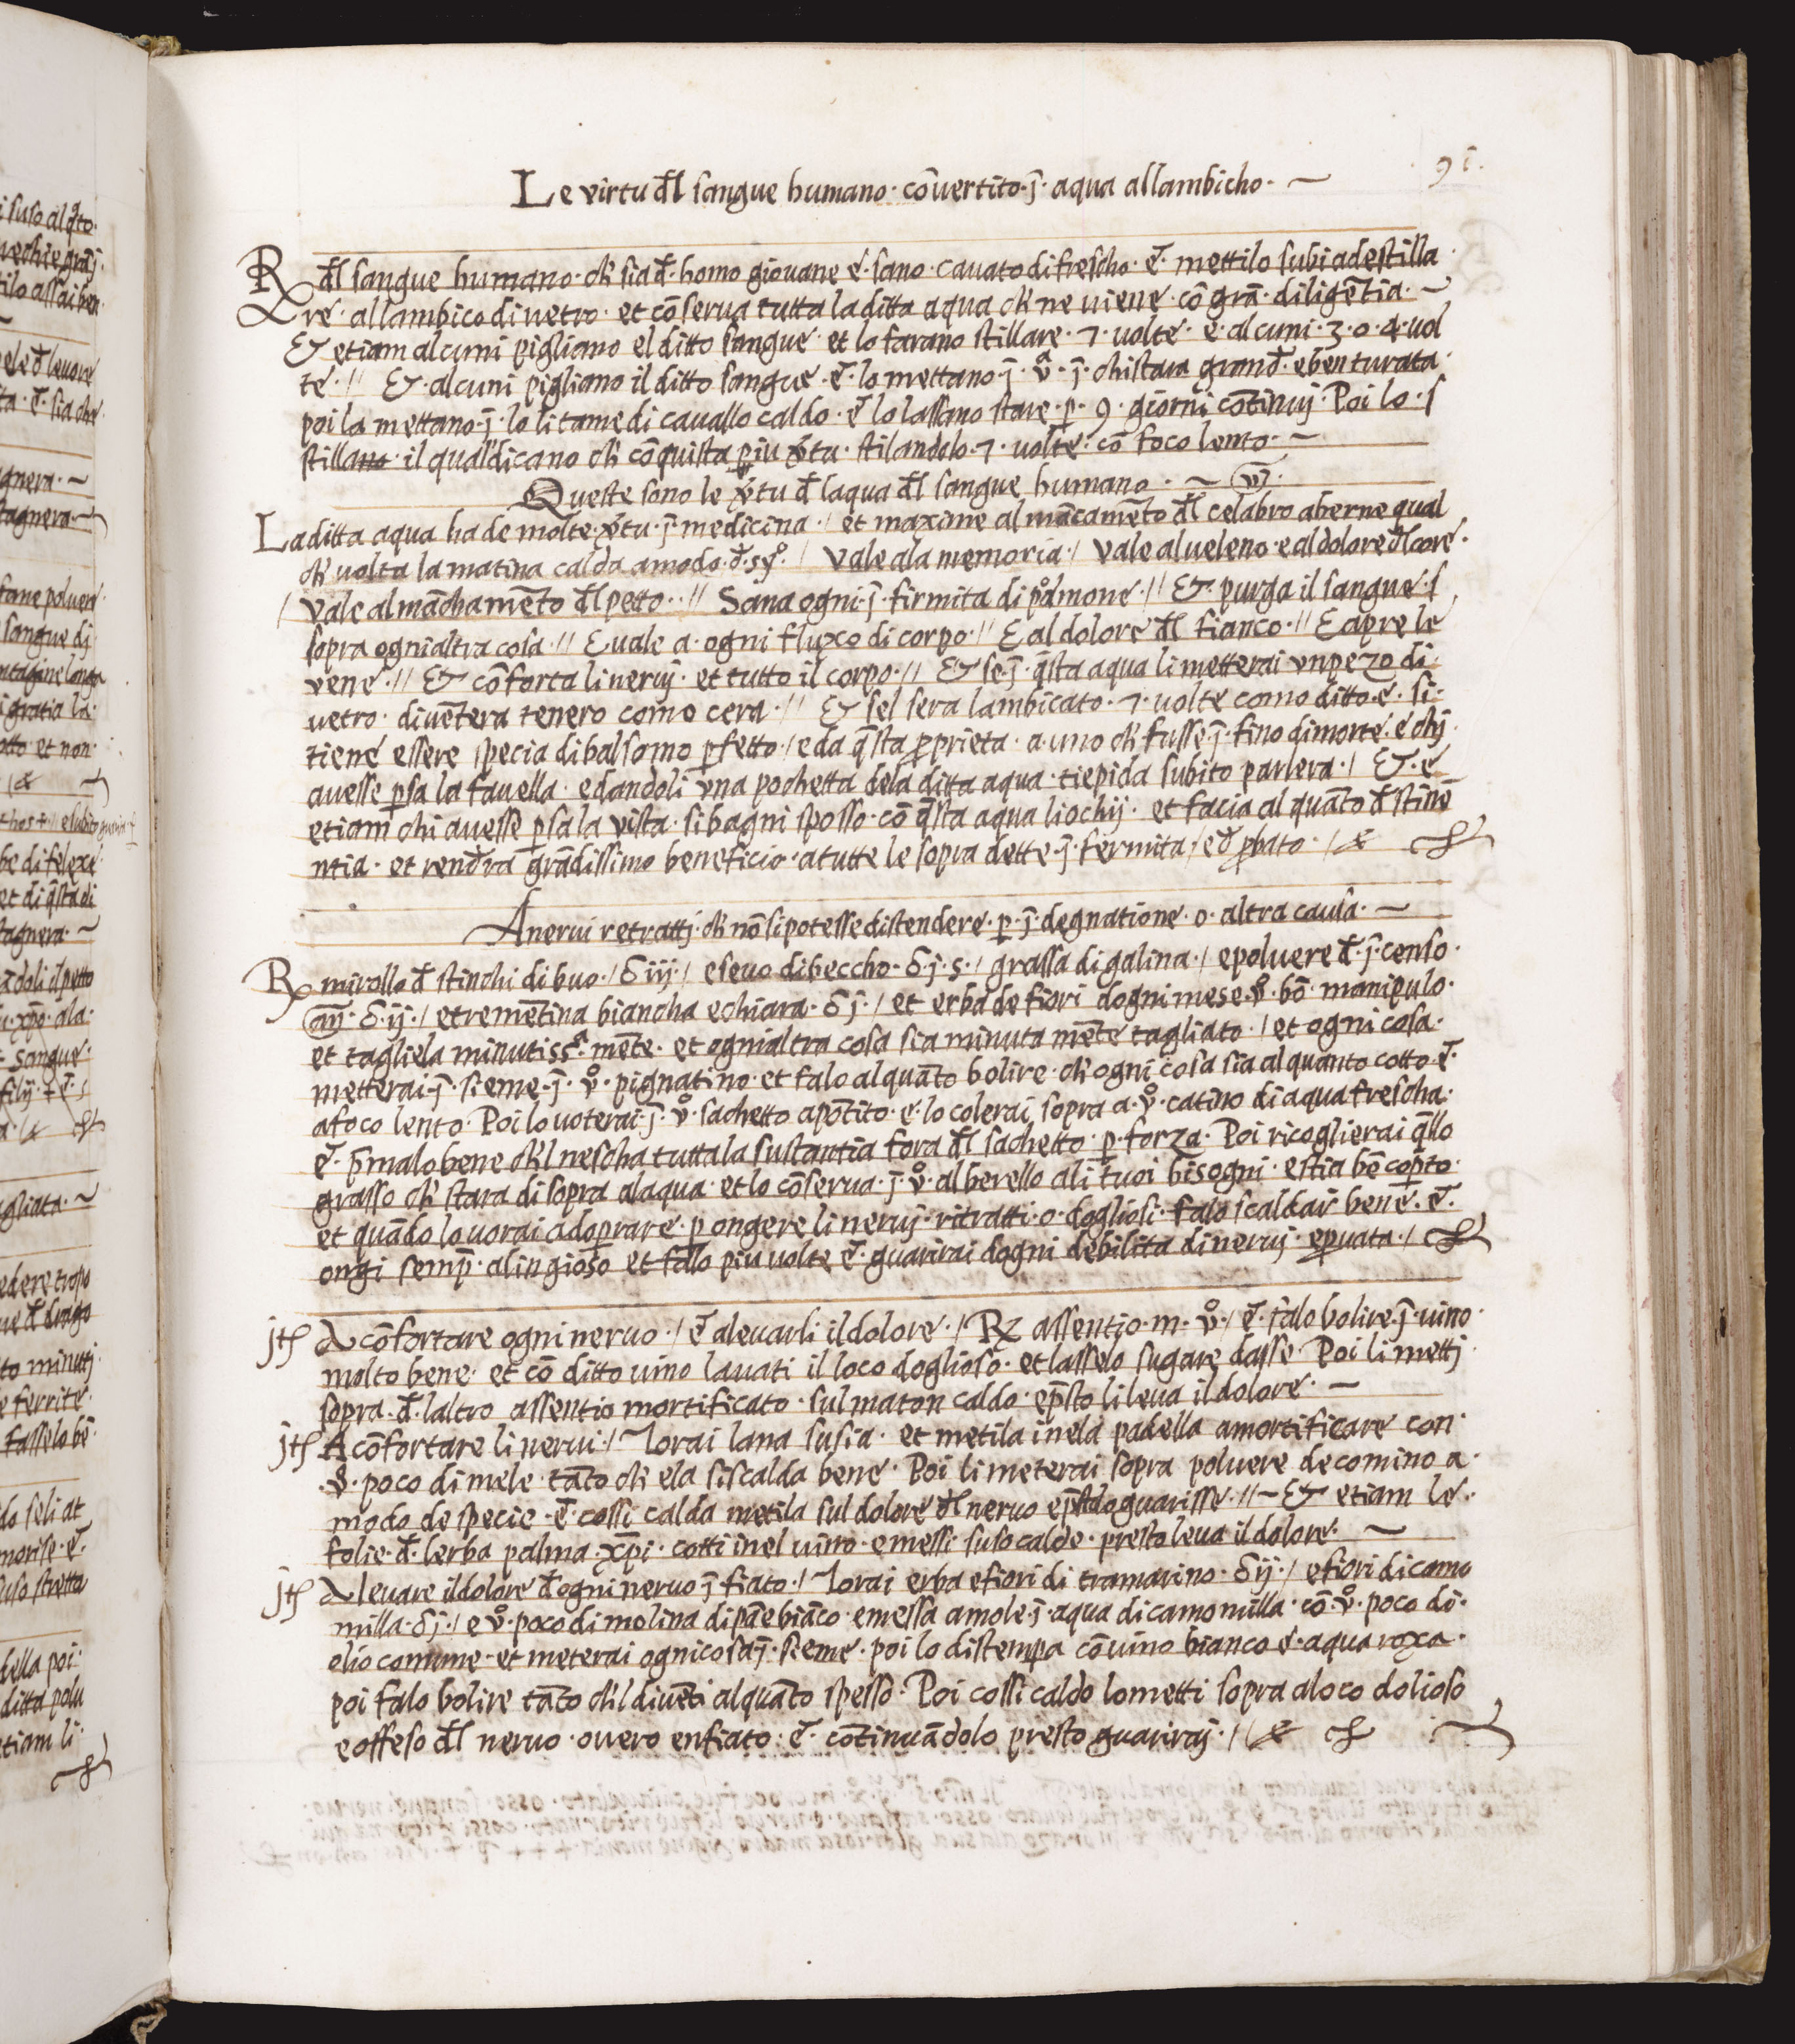 91.
Le virtu đl sangue humano · cōvertito · j̄ · aqua allambicho · ~
℞ đl sangue humano · ch' sia đ · homo giovane é · sano · cavato di frescho · ē · mettilo subi adestilla
re · allambico di vetro · et cōserva tutta la ditta aqua ch' ne viene · cō grā · diligētia · ~
& etiam alcuni pigliano el ditto sangue · et lo farano stillare · 7 · volte · é · alcuni · 3 · o · 4 · vol
te · // & · alcuni pigliano il ditto sangue · ē · lo mettano · j̄ · vᵃ · j̄ · chistara grand̄ · e ben turata ·
poi la mettano · j̄ · lo litame di cavallo caldo · ē lo lassano stare · p · 9 · giorni cōtinuj · Poi lo · s
stillano · il qual' dicano ch' cōquista piu v̄tu · stilandolo · 7 · volte · cō foco lento · ~
Queste sono le v̄tu đ laqua đl sangue humano · ~ vj ·
La ditta aqua ha de molte · v̄tu · j̄ · medicina · / et maxime al mācamēto đl celabro aberne qual
ch' volta la matina calda a modo · đ · syº · / Vale ala memoria · / Vale al veleno · e al dolore đl core ·
/ Vale al māchamēto đl petto · · // Sana ogni · j̄ · firmita di pºlmone · // & · purga il sangue · s
sopra ognialtra cosa · // E vale a · ogni fluxo di corpo · // E al dolore đl fianco · // E apre le
vene · // & cōforta li neruj · et tutto il corpo · // & se · j̄ · q̄sta aqua li metterai vn pezo di
vetro · diuētera tenero como cera · // & sel sera lambicato · 7 · volte como ditto · é · si ·
tiene essere specia di balsomo pfetto · / e da q̄sta pprieta · a uno ch' fusse · j̄ · fino di morte · e chj
avesse psa la favella · e dandoli vna pochetta dela ditta aqua · tiepida subito parlera · / & · e
etiam chi avesse psa la vista · si bagni spesso · cō q̄sta aqua li ochij · et facia al quāto đ stinē
ntia · et rendra grādissimo beneficio · a tutte le sopra dette · j̄ · fermita / e đ pbato · / &
A nervi retrattj · ch' nō si potesse distendere · p · j̄ · degnatione · o · altra causa · ~
℞ mirollo đ stinchi di buo · / ʒ iij · / e sevo di beccho · ʒ · j · s · / grassa di galina · / e poluere đ · j̄ · censo ·
añ · ʒ · ij · / e tremētina biancha e chiara · ʒ j · / et erba de fiori dogni mese · vº · bō · manipulo ·
et tagliela minutissᵃ mēte · et ognialtra cosa sia minuta mēte tagliato · / et ogni cosa ·
metterai · j̄ · sieme · j̄ · vº · pignatino · et falo alquāto bolire · ch' ogni cosa sia alquanto cotto · ē ·
a foco lento · Poi lo voterai · j̄ · vº · sachetto apōtito · e · lo colerai sopra a · vº · catino di aqua frescha ·
ē · p̄malo bene ch'l nescha tutta la sustantia fora đl sachetto · p · forza · Poi ricoglierai q̄llo
grasso ch' stara di sopra alaqua · et lo cōserva · j̄ · vº · alberello ali tuoi bisogni · e stia bē copto ·
et quādo lo vorai adoprare · p ongere li neruj · ritratti · o · dogliosi · falo scaldar bene · ē ·
ongi semp · alingioso et fallo piu volte ē · guarirai dogni debilita di neruj · e pvata · /
jtɧ A cōfortare ogni nervo · / ē a levarli il dolore · / ℞ assentio · m · vº · / ē · falo bolire · j̄ · vino ·
molto bene · et cō ditto vino lavati il loco doglioso · et lasselo sugare dasse · Poi li mettj
sopra · đ · laltro assentio mortificato · sul maton caldo · e p̄sto li leva il dolore · ~
jtɧ A cōfortare li nervi · / Torai lana susia · et metila in ela padella a mortificare con ·
· vº · poco di mele · tāto ch' ela si scalda bene · Poi li meterai sopra poluere de comino a ·
modo de specie · ē · cossi calda metila sul dolore đl nervo e guarisse · // ~ & etiam le ·
folie · đ · lerba palma · xp̄i · cotti in el vino · e messi suso calde · presto leva il dolore · ~
jtɧ A levare il dolore đ ogni nervo j̄ fiato · / Torai erba e fiori di tramarino · ʒ ij · / e fiori di camo
milla · ʒ j · / e vº · poco di molina di pāe biāco · e messa a mole · j̄ · aqua di camomilla · cō · vº · poco di ·
olio comune · et meterai ogni cosa j̄ · sieme · poi lo distempa cō vino bianco é · aqua roxa ·
poi falo bolire tāto ch'l diuēti alquāto spesso · Poi cossi caldo lo metti sopra a loco dolioso
e offeso đl nervo · overo enfiato · ē · cōtinuādolo presto guarirai · / &